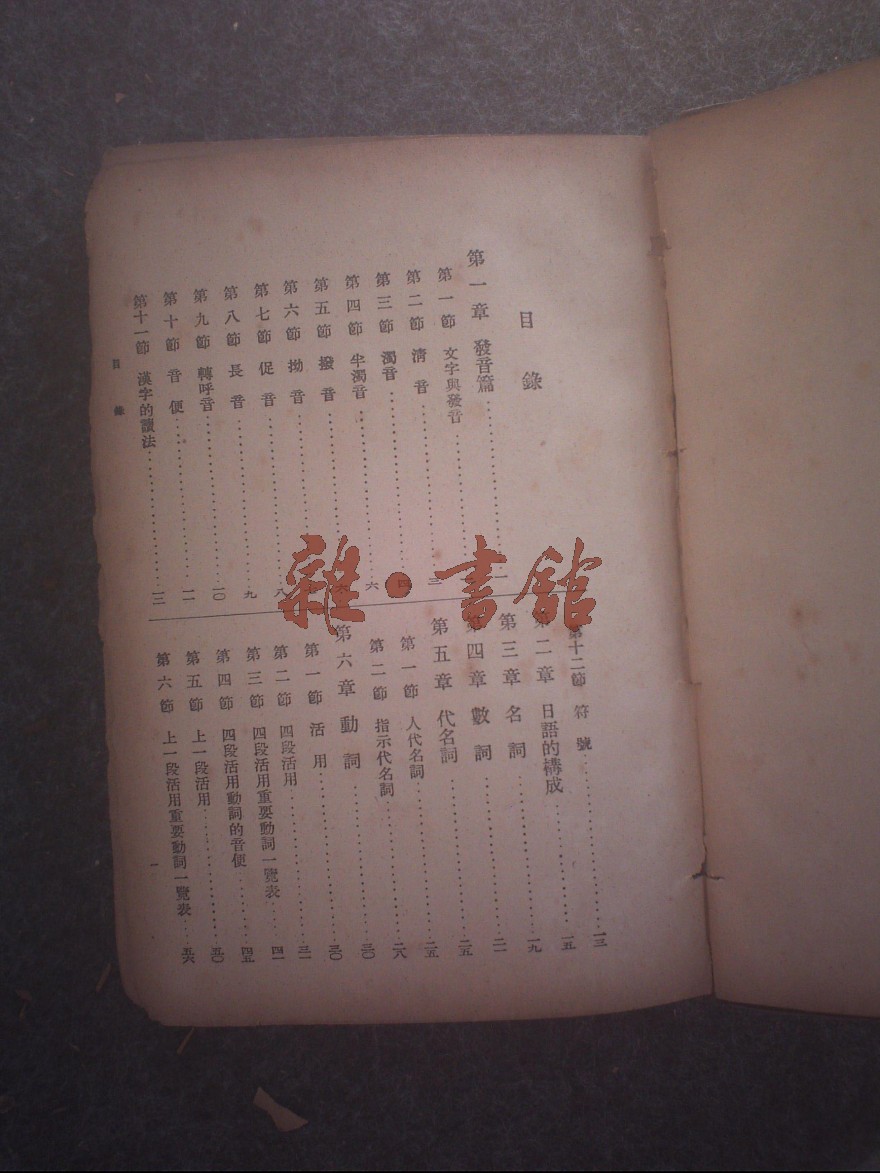 目錄
第一章 發音篇……一
第一節 文字與發音……
第二節 清音……三
第三節 濁音……四
第四節 半濁音……六
第五節 撥音……
第六節 拗音……
第七節 促音……八
第八節 長音……九
第九節 轉呼音……一〇
第十節 音便……一一
第十一節 漢字的讀法……一二
第十二節 符號……一三
第二章 日語的構成……一五
第三章 名詞……一九
第四章 數詞……二一
第五章 代名詞……二五
第一節 人代名詞……二五
第二節 指示代名詞……二八
第六章 動詞……三〇
第一節 活用……三〇
第二節 四段活用……三一
第三節 四段活用重要動詞一覽表……四一
第四節 四段活用動詞的音便……四五
第五節 上一段活用……五〇
第六節 上一段活用重要動詞一覽表……五六
目錄
一
雜·書館